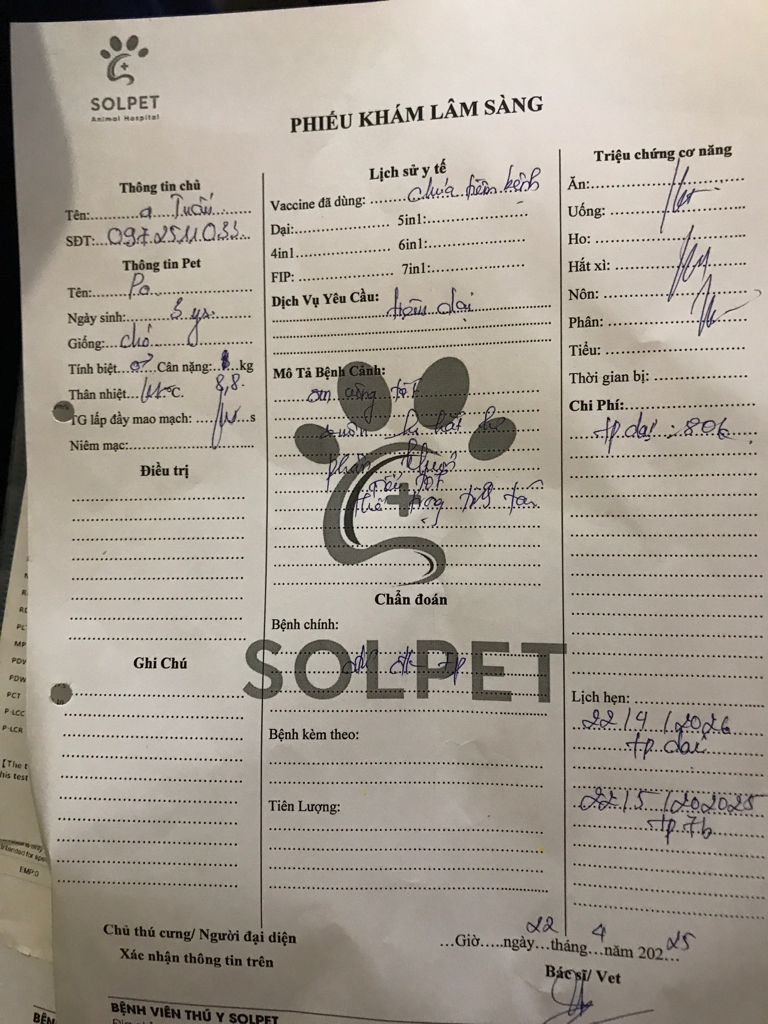 SOLPET
Animal Hospital
PHIẾU KHÁM LÂM SÀNG
Thông tin chủ
Tên: a Tuấn
SĐT: 097.2511.033
Thông tin Pet
Tên: Po
Ngày sinh: 3 yr
Giống: chó
Tính biệt ♂ Cân nặng: kg
8,8
Thân nhiệt °C.
TG lấp đầy mao mạch: s
Niêm mạc:
Điều trị
Ghi Chú
Lịch sử y tế
Vaccine đã dùng: chưa tiêm bệnh
Dại: 5in1:
4in1 6in1:
FIP: 7in1:
Dịch Vụ Yêu Cầu: tiêm dại
Mô Tả Bệnh Cảnh:
ăn uống tốt
phân khuôn
Chẩn đoán
Bệnh chính:
SOLPET
Bệnh kèm theo:
Tiên Lượng:
Triệu chứng cơ năng
Ăn:
Uống:
Ho:
Hắt xì:
Nôn:
Phân:
Tiểu:
Thời gian bị:
Chi Phí:
tp dại : 80k
Lịch hẹn:
22/4/2026
tp dại
22/5/202025
tp 7b
Chủ thú cưng/ Người đại diện
Xác nhận thông tin trên
...Giờ.....ngày 22 tháng 4 năm 202 25
Bác sĩ/ Vet
BỆNH VIỆN THÚ Y SOLPET
PDV
PDW
PCT
P-LCC
P-LCR
[The t
his test
Intended for spe
EMP.0
BỆN